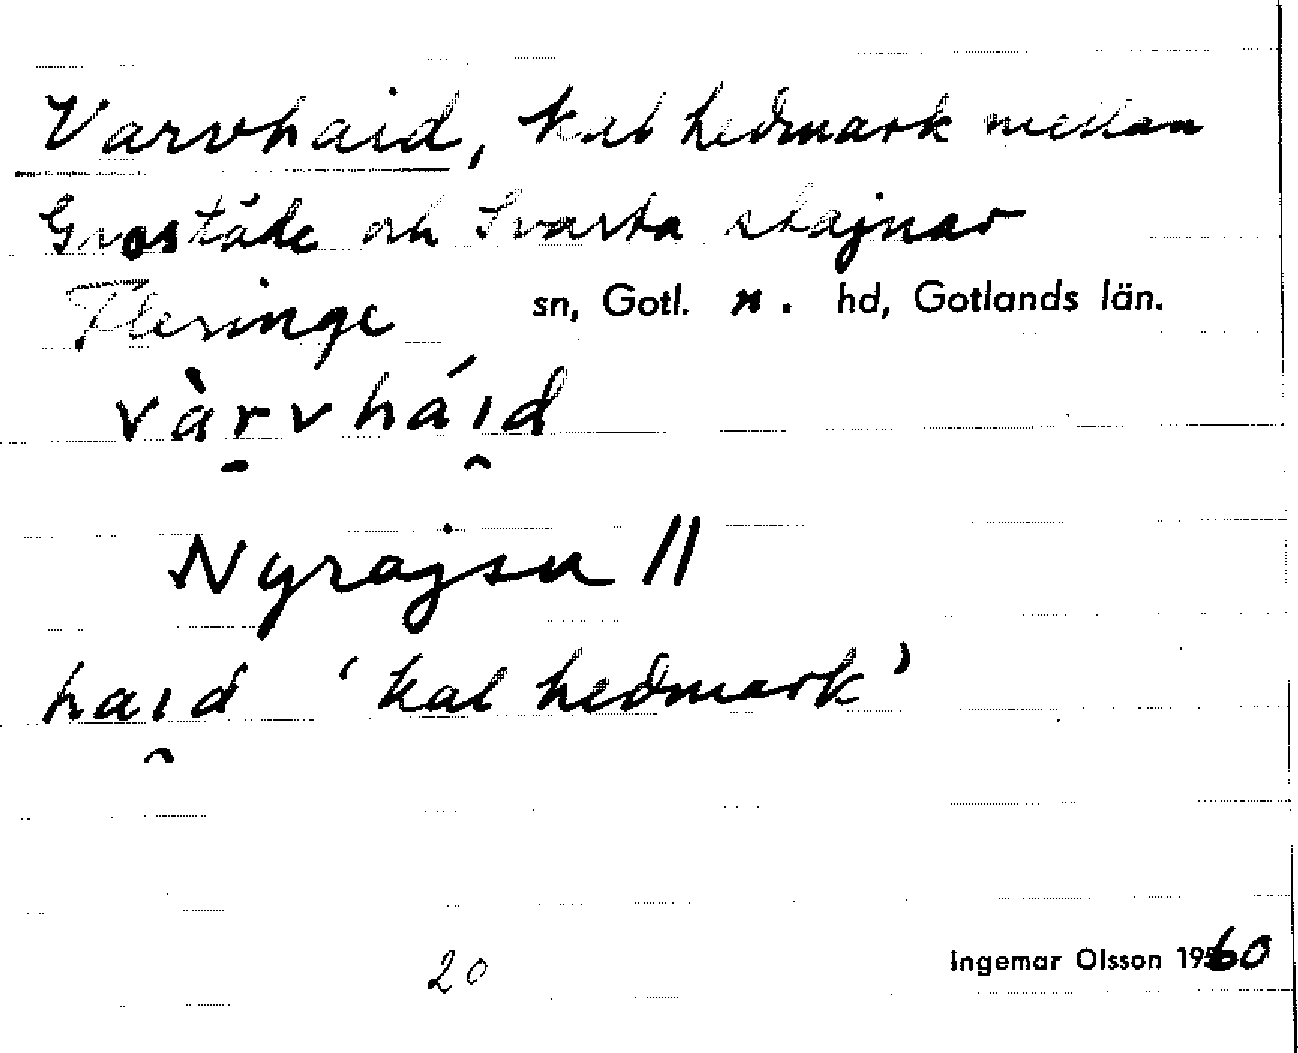 Varvhaid, kal hedmark mellan
Grostäde och Svarta stajnar
Fleringe sn, Gotl. n. hd, Gotlands län.
vàrvháıd
Nyrajsu 11
haıd 'kal hedmark'
20 Ingemar Olsson 1960